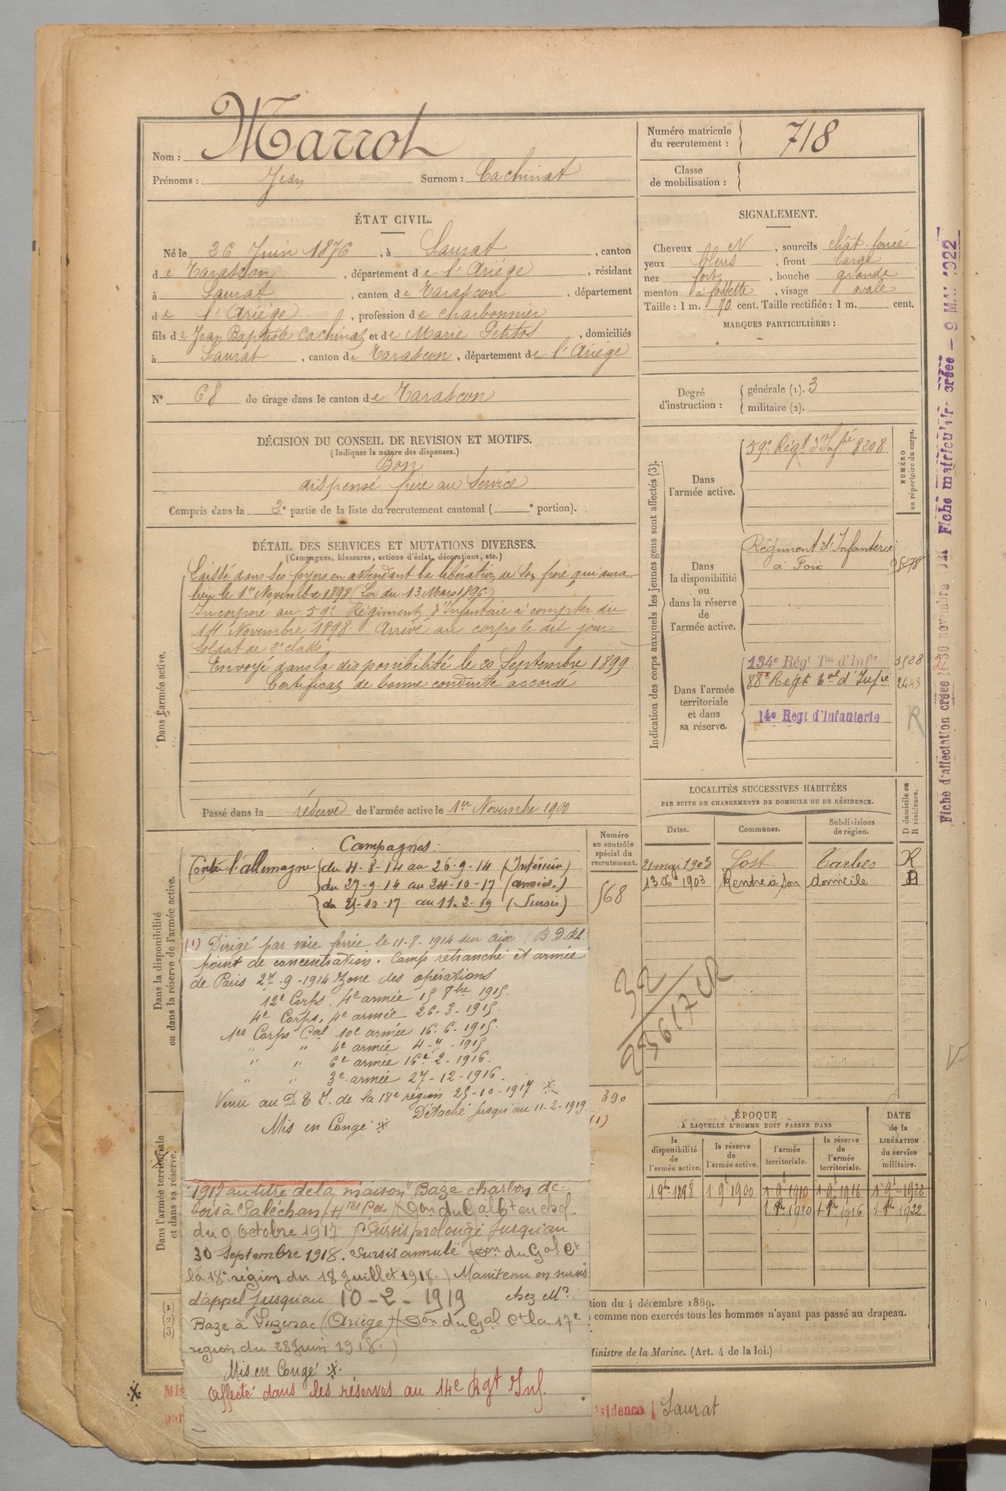 Nom : Marrot
Prénoms : Jean Surnom : Cachinat
Numéro matricule du recrutement : 718
Classe de mobilisation :
ÉTAT CIVIL.
Né le 26 Juin 1876, à Saurat, canton
de Tarascon, département de l'Ariège, résidant
à Saurat, canton de Tarascon, département
de l'Ariège, profession de charbonnier
fils de Jean Baptiste Cachinat et de Marie Petitot, domiciliés
à Saurat, canton de Tarascon, département de l'Ariège
N° 68 de tirage dans le canton de Tarascon
SIGNALEMENT.
Cheveux N, sourcils chât foncé
yeux bleus, front large
nez fort, bouche grande
menton à fossette, visage ovale
Taille : 1 m. 70 cent. Taille rectifiée : 1 m. cent.
MARQUES PARTICULIÈRES :
Degré d'instruction : générale (1). 3
militaire (2).
DÉCISION DU CONSEIL DE REVISION ET MOTIFS.
(Indiquer la nature des dispenses.)
Bon
dispensé frère au service
Compris dans la 3e partie de la liste du recrutement cantonal ( e portion).
DÉTAIL DES SERVICES ET MUTATIONS DIVERSES.
(Campagnes, blessures, actions d'éclat, décorations, etc.)
Dans l'armée active.
Laissé dans ses foyers en attendant la libération de son frère qui aura
lieu le 1er Novembre 1898 (Loi du 13 Mars 1896)
Incorporé au 59e Régiment d'Infanterie à compter du
14 Novembre 1898 Arrivé au corps le dit jour
soldat de 2e classe
Envoyé dans la disponibilité le 20 Septembre 1899
Certificat de bonne conduite accordé
Passé dans la réserve de l'armée active le 1er Novembre 1900
Indication des corps auxquels les jeunes gens sont affectés (3).
NUMÉRO au répertoire du corps.
Dans l'armée active.
59e Régt d'Infie 8208
Dans la disponibilité ou dans la réserve de l'armée active.
Régiment d'Infanterie
à Foix
Dans l'armée territoriale et dans sa réserve.
134e Régt Tal d'Infie
88e Regt tal d'Infie 2443
14e Regt d'Infanterie
R
LOCALITÉS SUCCESSIVES HABITÉES
PAR SUITE DE CHANGEMENTS DE DOMICILE OU DE RÉSIDENCE.
Dates. Communes. Subdivisions de région. D domicile ou R résidence.
21 mai 1903 Sost Tarbes R
13 Xbre 1903 Rentré à son domicile D
Dans la disponibilité ou dans la réserve de l'armée active.
Numéro au contrôle spécial du recrutement.
568
Campagnes.
Contre l'allemagne du 4-8-14 au 26-9-14 (Intérieur)
du 27-9-14 au 24-10-17 (armées.)
du 25-10-17 au 11-2-19 (Sursis)
(1) Dirigé par voie ferrée le 11-8-1914 sur Aix
point de concentration. Camp retranché et armée
de Paris 27-9-1914 Zone des opérations
12e Corps, 4e armée 15 8bre 1915.
4e Corps, 4e armée 26-3-1915.
1er Corps Cal 10e armée 16-6-1915.
" " 4e armée 4-7-1915
" " 6e armée 16-2-1916.
" " 3e armée 27-12-1916.
Venu au D.E.I. de la 18e région 25-10-1917
Détaché jusqu'au 11-2-1919.
Mis en Congé
390
(1)
Dans l'armée territoriale et dans sa réserve.
1917 au titre de la maison Baze charbon de
bois à Saléchan, Htes Pées (Don du Gal Ct en chef
du 9 Octobre 1917) Sursis prolongé jusqu'au
30 Septembre 1918. Sursis annulé Don du Gal Ct
la 18e région du 18 Juillet 1918.) Maintenu en sursis
d'appel jusqu'au 10-2-1919 chez Mr
Baze à Luzenac (Ariège) Don du Gal Ct la 17e
région du 28 Juin 1918.)
Mis en Congé
Affecté dans les réserves au 14e Rgt Inf.
ÉPOQUE
A LAQUELLE L'HOMME DOIT PASSER DANS
DATE de la LIBÉRATION du service militaire.
la disponibilité de l'armée active. la réserve de l'armée active. l'armée territoriale. la réserve de l'armée territoriale.
1 9bre 1898 1 9bre 1900 1 9bre 1910 1 9bre 1916 1 9bre 1922
1 8bre 1910 1 8bre 1916 1 8bre 1922
tion du 4 décembre 1889.
comme non exercés tous les hommes n'ayant pas passé au drapeau.
Ministre de la Marine. (Art. 4 de la loi.)
sidence Saurat
Fiche matriculaire créée - 9 MAI 1922